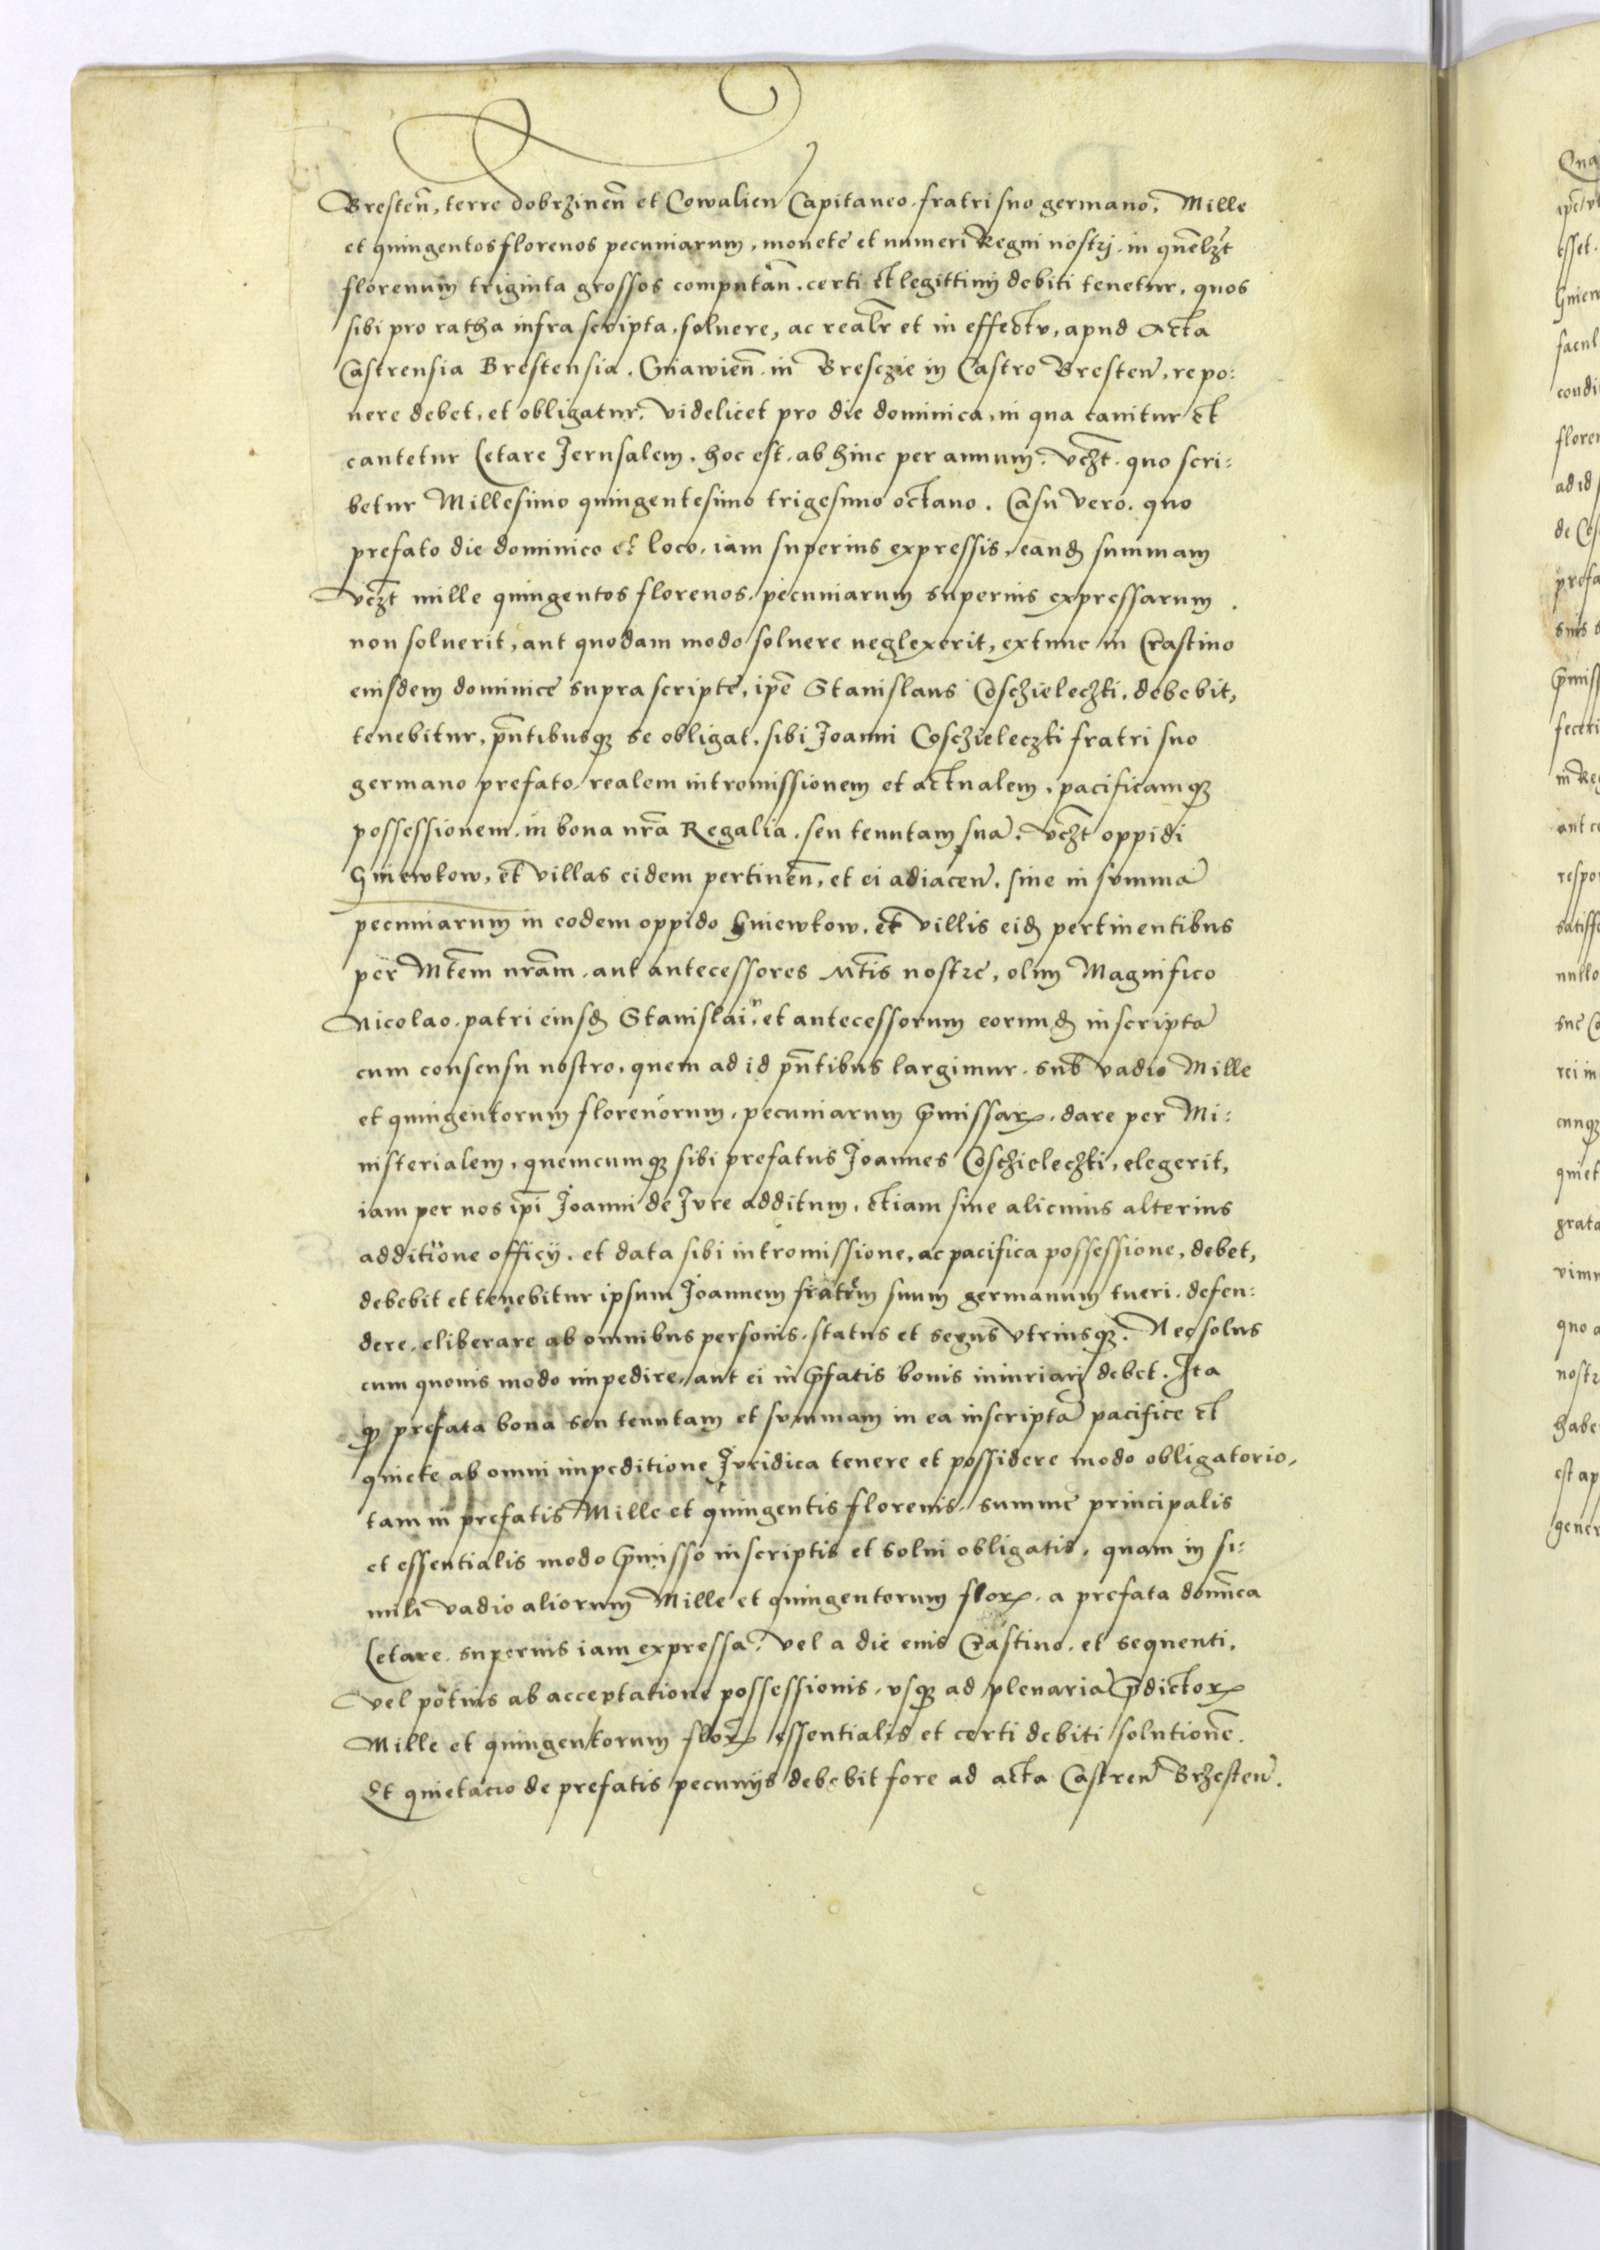 Bresteñ, terre dobrzineñ et Cowalieñ Capitaneo. fratri suo germano, Mille
et quingentos florenos pecuniarum, monete et numeri Regni nostrj. in quẽlzt
florenum triginta grossos computañ. certi et legittimj debiti tenetur, quos
sibi pro ratha infra scripta, soluere, ac realr̃ et in effectu, apud Acta
Castrensia Brestensia. Cuiawieñ. in Bresczie in Castro Bresteñ, repo:
nere debet, et obligatur. videlicet pro die dominica, in qua canitur et
cantetur Letare Jerusalem. hoc est. ab hinc per annum. vczt. quo scri:
betur Millesimo quingentesimo trigesimo octauo. Casu vero. quo
prefato die dominico et loco, iam superius expressis, eanđ summam
vczt mille quingentos florenos. pecuniarum superius expressarum.
non soluerit, aut quodam modo soluere neglexerit, extunc in Crastino
eiusdem dominice supra scripte, ip̃e Stanislaus Coschielechti, debebit,
tenebitur, pñtibusq; se obligat, sibi Joanni Coschieleczki fratri suo
germano prefato, realem intromissionem et actualem, pacificamq;
possessionem. in bona nrã Regalia. seu tenutam suã. vczt oppidi
Gniewkow, et villas eidem pertineñ, et ei adiaceñ. siue in summã
pecuniarum in eodem oppido Gniewkow, et villis eiđ pertinentibus
per Mtem nrãm. aut antecessores Mtis nostre, olim Magnifico
Nicolao. patri eiusđ Stanislai. et antecessorum eorunđ inscriptã
cum consensu nostro, quem ad id pñtibus largimur. sub vadio Mille
et quingentorum florenorum. pecuniarum p̃missarꝝ. dare per Mi:
nisterialem, quemcumq; sibi prefatus Joannes Coschielechti, elegerit,
iam per nos ip̃i Joanni de Jure additum, etiam sine alicuius alterius
additione officij. et data sibi intromissione, ac pacifica possessione, debet,
debebit et tenebitur ipsum Joannem fratrem suum germanum tueri. defen:
dere, eliberare ab omnibus personis. status et sexus vtriusq;. Nec solus
eum quouis modo impedire, aut ei in p̃fatis bonis iniuriarj debet. Ita
q; prefata bona seu tenutam et summam in ea inscriptã pacifice et
quiete ab omni impeditione Juridica tenere et possidere modo obligatorio,
tam in prefatis Mille et quingentis florenis. summe principalis
et essentialis modo p̃misso inscriptis et solui obligatis, quam in si:
mili vadio aliorum Mille et quingentorum florꝝ. a prefata domĩca
Letare. superius iam expressa. vel a die eius Crastino. et sequenti,
vel potius ab acceptatione possessionis, vsq; ad plenariã p̃dictorꝝ
Mille et quingentorum florꝝ essentialis et certi debiti solutionẽ.
Et quietacio de prefatis pecunijs debebit fore ad acta Castreñ Brzesteñ.